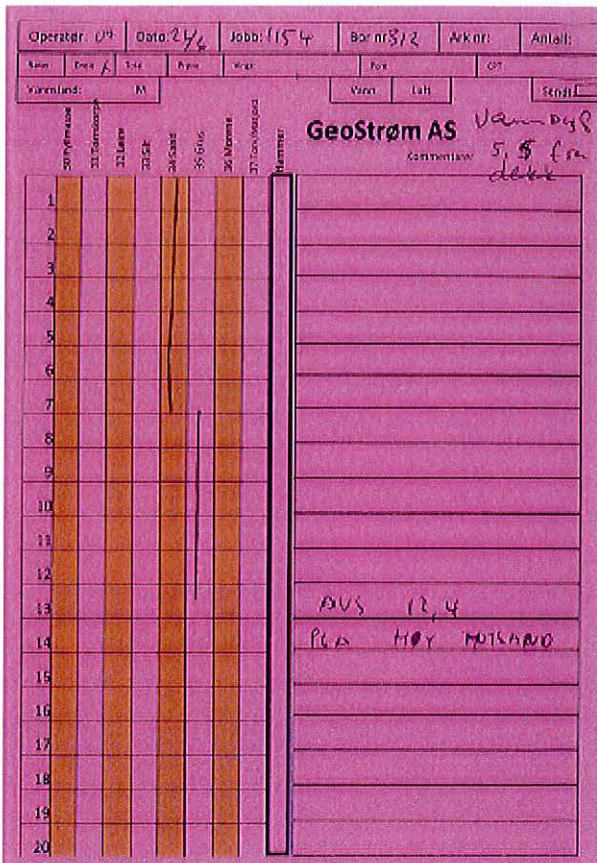 Operatør: Dato: 24/6 Jobb: 1154 Bor nr 812 Ark nr: Antall:
Enkel X Total Prøve Vinge Pore CPT
Vannstand: M Vann Luft Sendt:
30 Fyllmasse 31 Tørrskorpe 32 Leire 33 Silt 34 Sand 35 Grus 36 Morene 37 Torv/Matjord Hammer
GeoStrøm AS
Kommentarer
5,5 fra
dekke
1
2
3
4
5
6
7
8
9
10
11
12
13 AVS 12,4
14 PGA HØY MOTSTAND
15
16
17
18
19
20